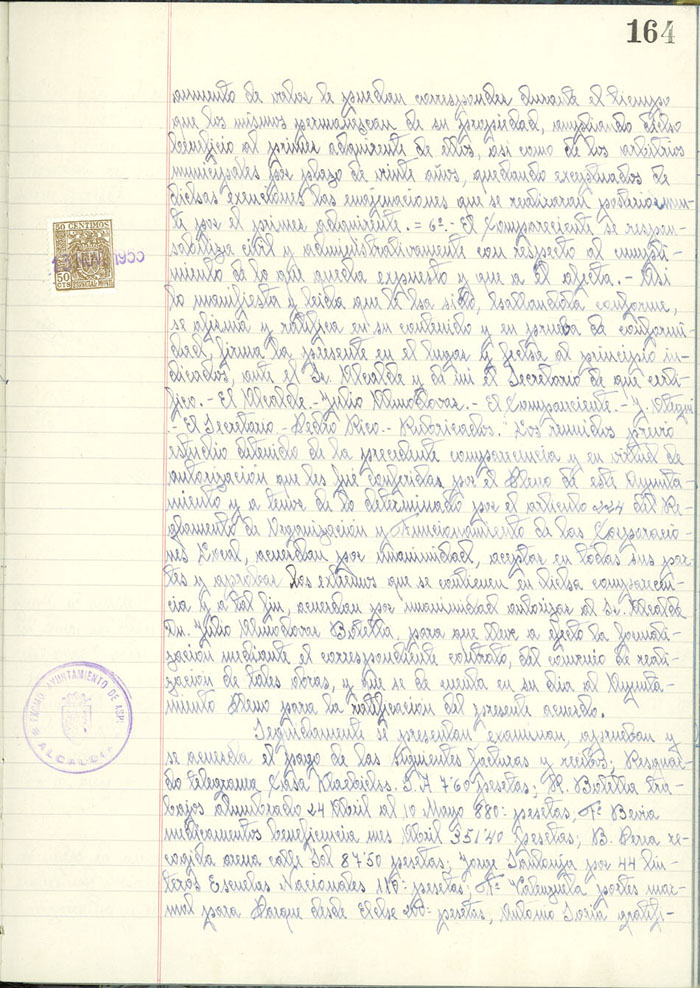 164
aumento de valor le puedan corresponder durante el tiempo
que los mismos permanezcan de su propiedad, ampliando dicho
beneficio al primer adquirente de ellos, asi como de los arbitrios
municipales por plazo de veinte años, quedando exceptuados de
dichas exenciones las enajenaciones que se realizaran posteriormen-
te por el primer adquirente.= 6º.- El Compareciente se respon-
sabiliza civil y administrativamente con respecto al cumpli-
miento de lo que queda expuesto y que a el afecta.- Asi
lo manifiesta y leida que le ha sido, hallandola conforme,
se afirma y ratifica en su contenido y en prueba de conformi-
dad, firma la presente en el lugar y fecha al principio in-
dicados, ante el Sr. Alcalde y de mi el Secretario de que certi-
fico.- El Alcalde.- Julio Almodovar.- El Compareciente.- J.
- El Secretario.- Pedro Rico.- Rubricados." Los reunidos previo
estudio detenido de la precedente comparecencia y en virtud de
autorización que les fué conferidas por el Pleno de este Ayunta-
miento y a tenor de lo determinado por el articulo 224 del Re-
glamento de Organización y Funcionamiento de las Corporacio-
nes Local, acuerdan por unanimidad, aceptar en todas sus par-
tes y aprobar los extremos que se contienen en dicha comparecen-
cia y a tal fin, acuerdan por unanimidad autorizar al Sr. Alcalde
Dn. Julio Almodovar Botella, para que lleve a efecto la formali-
zación mediante el correspondiente contrato, del convenio de reali-
zación de tales obras, y que se de cuenta en su dia al Ayunta-
miento Pleno para la ratificación del presente acuerdo.
Seguidamente se presentan examinan, aprueban y
se acuerda el pago de las siguientes facturas y recibos;
do telegrama Casa S.A 7'60 pesetas; R. Botella tra-
bajos alumbrado 24 Abril al 10 Mayo 880'- pesetas, Fº Beviá
medicamentos beneficencia mes Abril 351'40 pesetas; B. Perea re-
cogida arena calle Sol 87'50 pesetas; Jorge por 44 tin-
teros Escuelas Nacionales 110'- pesetas; Fº Valenzuela portes mar-
mol para Parque desde Elche 200'- pesetas, Antonio Soria gratifi-
50 CENTIMOS
50
CTS
ESPECIAL MOVIL
1955
EXCMO. AYUNTAMIENTO DE ASPE
ALCALDIA